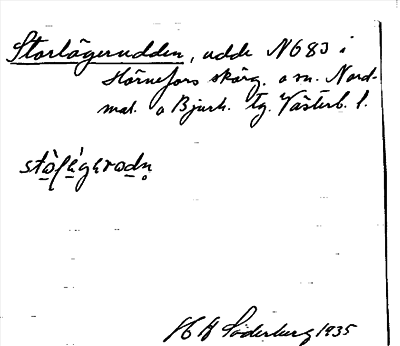 Storlägerudden, udde N683 i
Hörnefors skärg. o sn. Nord-
mal. o Bjurh. tg. Västerb. l.
H H Söderberg 1935